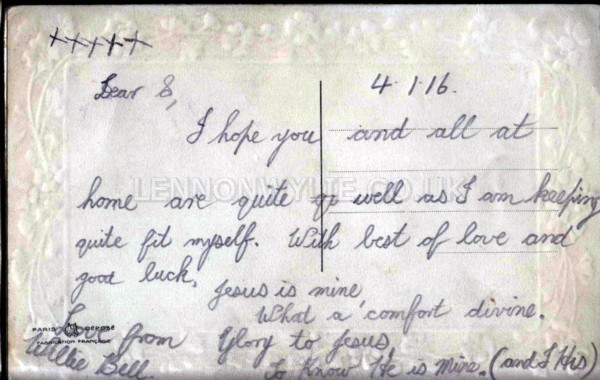 +++++
4·1·16.
Dear S,
I hope you and all at
home are quite well as I am keeping
LENNONWYLIE.CO.UK
quite fit myself. With best of love and
good luck.
Jesus is mine,
What a comfort divine.
Love from Glory to Jesus,
PARIS DEPOSÉ
FABRICATION FRANÇAISE
Willie Bell. to know He is mine. (and I His)